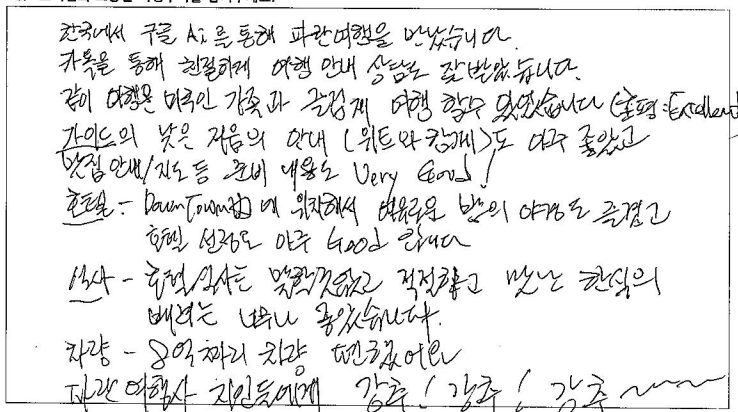 한국에서 구글 Ai를 통해 파란여행을 만났습니다.
카톡을 통해 친절하게 여행 안내 상담도 잘 받았습니다.
같이 여행온 미국인 가족과 즐겁게 여행 할수 있었습니다 (호평:Excellent)
가이드의 낮은 저음의 안내 (위트와 함께)도 아주 좋았고
맛집안내/지도 등 준비 내용도 Very Good!
호텔 - DownTown에 위치해서 여유로운 밤의 야경도 즐겼고
호텔 선정도 아주 Good 합니다
식사 - 호텔식사는 말할것없고 적절하고 맛난 한식의
배려는 너무나 좋았습니다.
차량 - 2억짜리 차량 편했어요
파란여행사 지인들에게 강추! 강추! 강추~~~